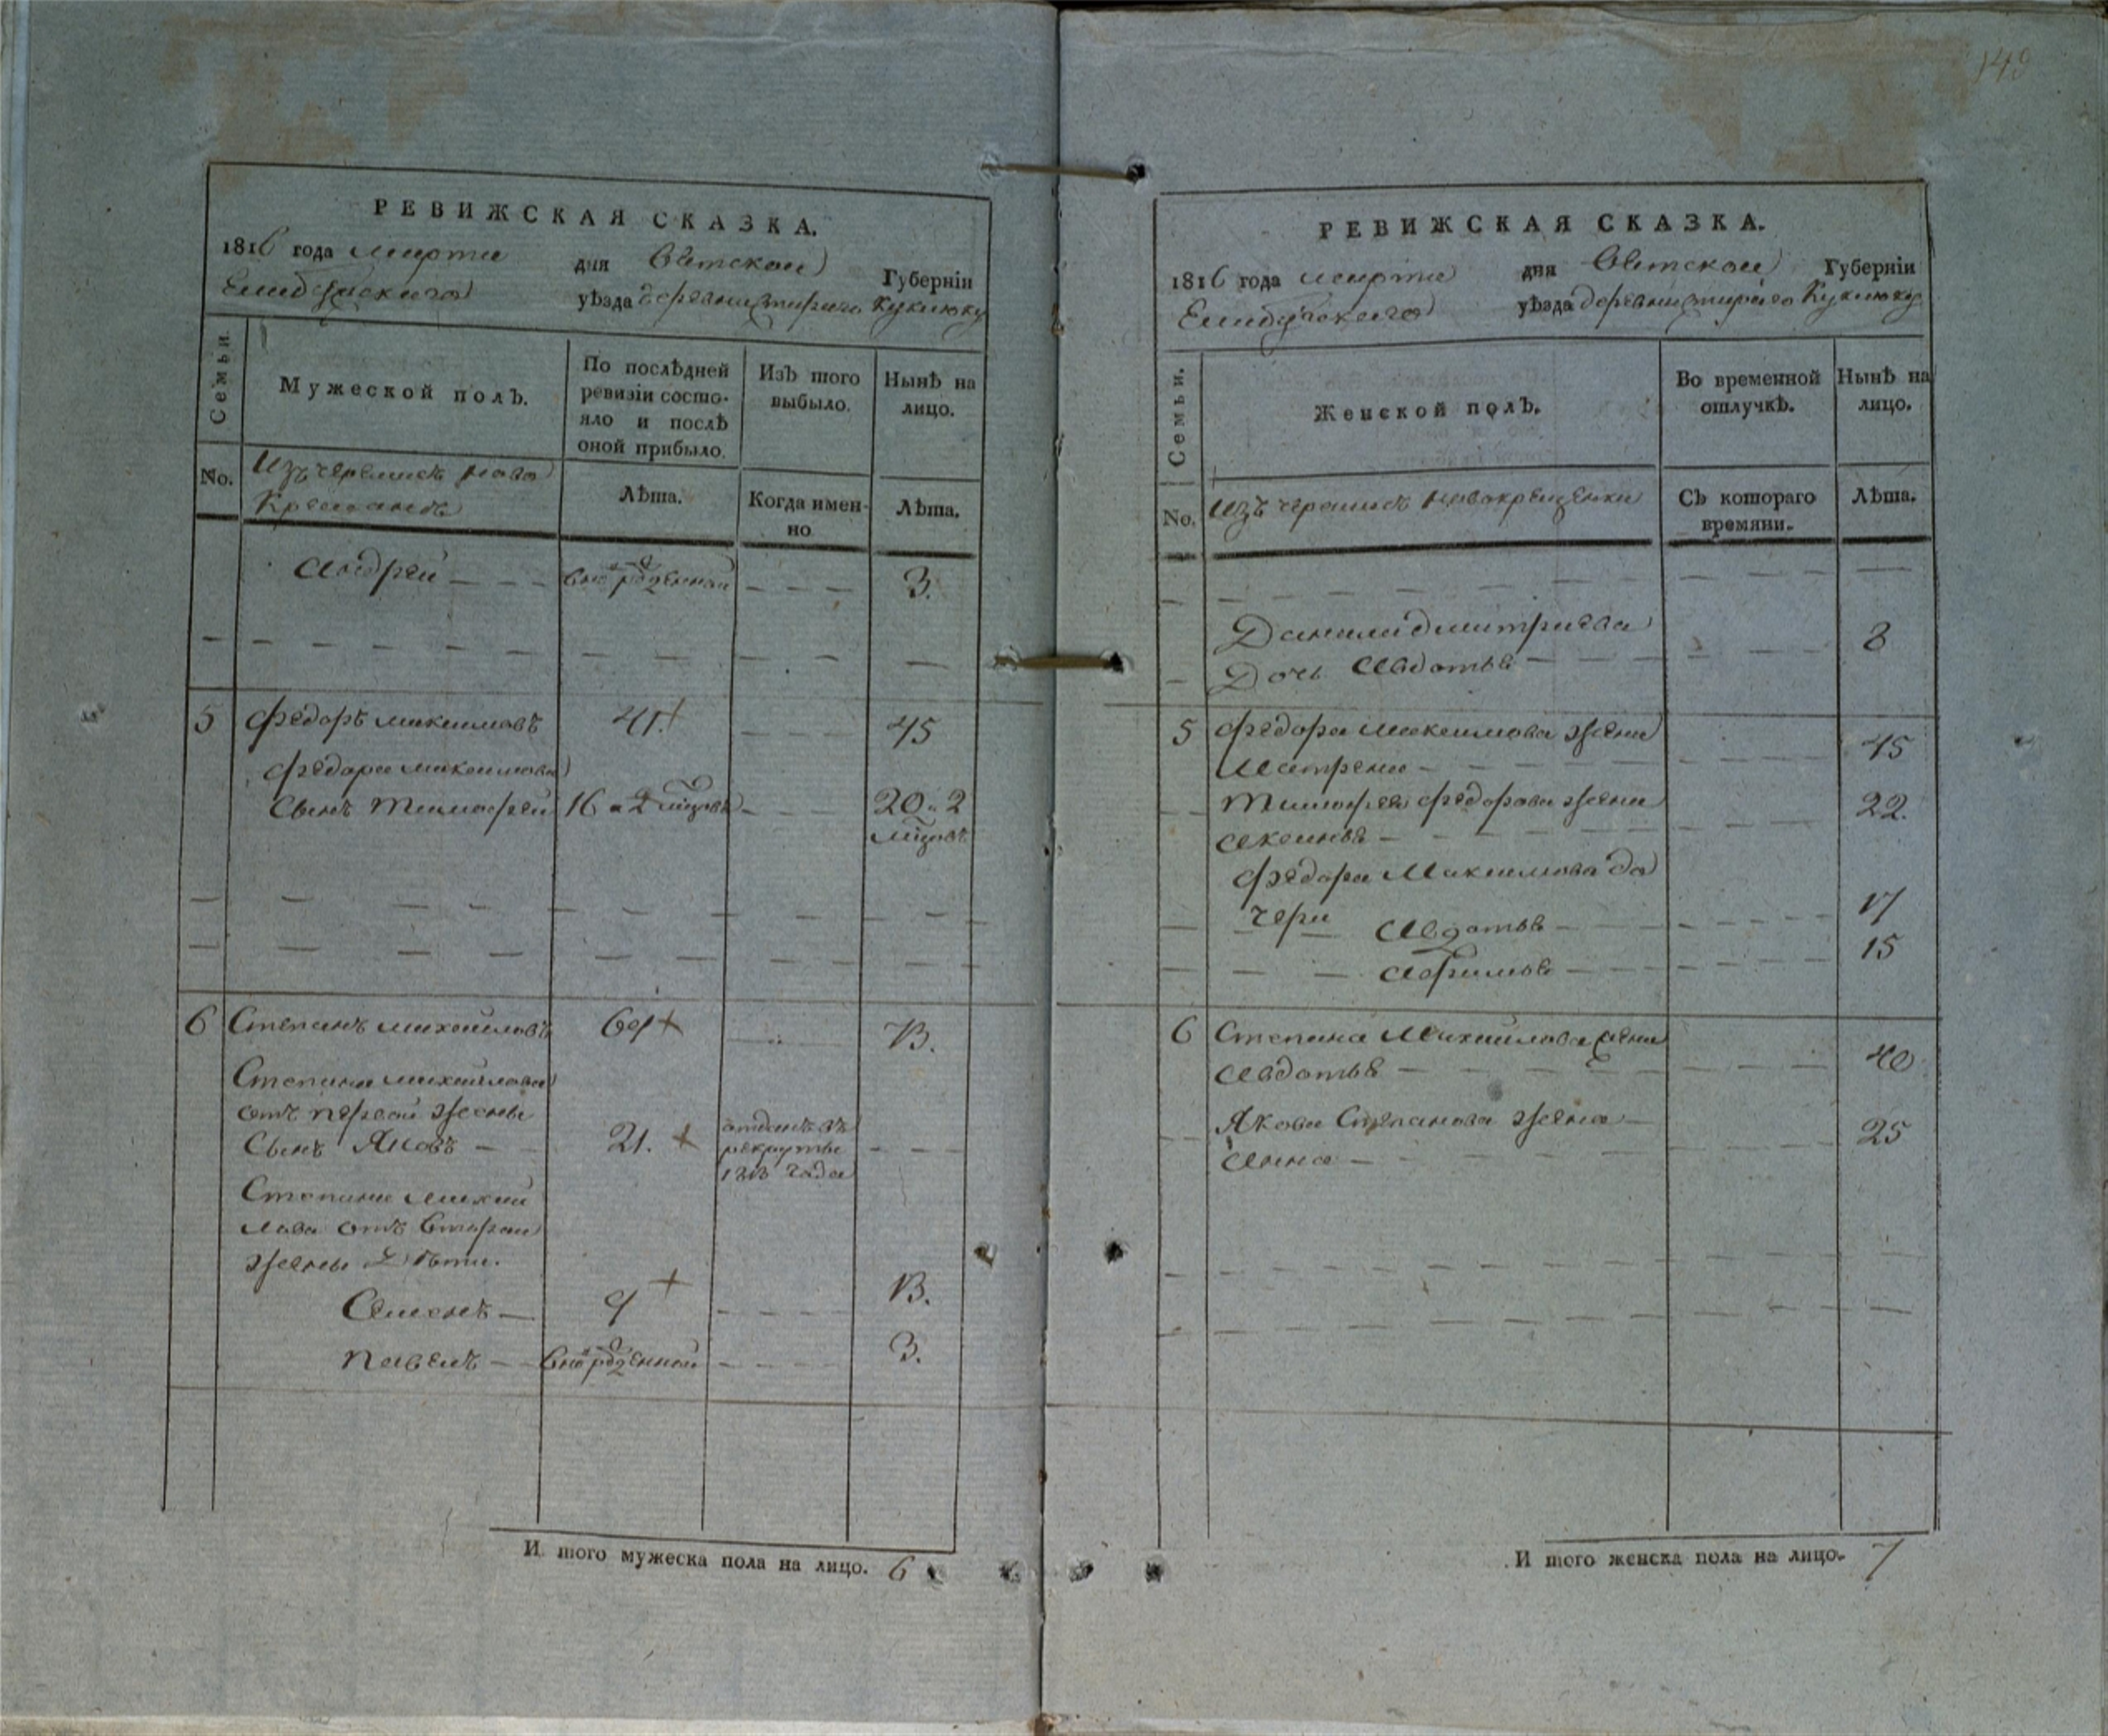 149
РЕВИЖСКАЯ СКАЗКА.
1816 года марта дня Вятской Губерніи
Елабужскаго уѣзда деревни Стараго Кукмюку
Семьи.
Мужеской полъ.
По послѣдней ревизіи состо-
яло и послѣ
оной прибыло.
Изъ того
выбыло.
Нынѣ на
лицо.
No.
Изъ черемисъ ново
Крещанъ
Лѣта.
Когда имен-
но
Лѣта.
Андрей
внорожденной
3.
5
Федоръ Макsимовъ
41.
45
Федора Максимова
Сынъ Тимофей
16 и 2 мцовъ
20 и 2
мцовъ
6
Степанъ Михайловъ
69
73.
Степана Михайлова
отъ первой жены
Сынъ Яковъ
21.
отданъ въ
рекруты
1813 года
Степана Михай
лова отъ второй
жены Дѣти.
Семенъ
9
13.
Павелъ
внорожденной
3.
И того мужеска пола на лицо. 6
РЕВИЖСКАЯ СКАЗКА.
1816 года марта дня Вятской Губерніи
Елабужскаго уѣзда деревни Стараго Кукмюку
Семьи.
Женской полъ.
Во временной
отлучкѣ.
Нынѣ на
лицо.
No.
Изъ черемисъ новокрещенки
Съ котораго
времяни.
Лѣта.
Данила Дмитриева
Дочь Авдотья
8
5
Федора Максимова жена
Матрена
45
Тимофея Федорова жена
Аксинья
22.
Федора Максимова до
чери Авдотья
17
Афимья
15
6
Степана Михайлова жена
Авдотья
40
Якова Степанова жена
Анна
25
И того женска пола на лицо. 7